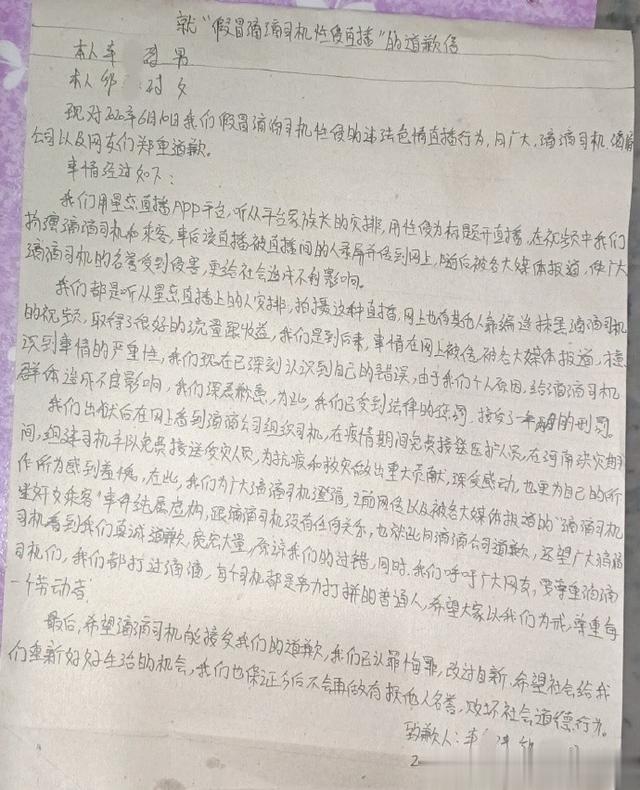 就“假冒滴滴司机性侵直播”的道歉信
本人车 男
本人邹 女
现对2020年6月10日我们假冒滴滴司机性侵的违法色情直播行为,向广大滴滴司机,滴滴
公司以及网友们郑重道歉。
事情经过如下:
我们用星恋直播APP平台,听从平台家族长的安排,用性侵为标题开直播,在视频中我们
扮演滴滴司机和乘客,事后该直播被直播间的人录屏并传到网上,随后被各大媒体报道,使广大
滴滴司机的名誉受到侵害,更给社会造成不利影响。
我们都是听从星恋直播上的人安排,拍摄这种直播,网上也有其他人靠编造抹黑滴滴司机
的视频,取得了很好的流量跟收益,我们是到后来,事情在网上被传,被各大媒体报道,才意
识到事情的严重性,我们现在已深刻认识到自己的错误,由于我们个人原因,给滴滴司机
群体造成不良影响,我们深表歉意,为此,我们已受到法律的惩罚,接受了一年 的刑罚。
我们出狱后在网上看到滴滴公司组织司机,在疫情期间免费接送医护人员,在河南洪灾期
间,组建司机车队免费接送受灾人员,为抗疫和救灾做出重大贡献,深受感动,也更为自己的所
作所为感到羞愧,在此,我们为广大滴滴司机澄清,之前网传以及被各大媒体报道的“滴滴司机
迷奸女乘客”事件纯属虚构,跟滴滴司机没有任何关系,也就此向滴滴公司道歉,还望广大滴滴
司机看到我们真诚道歉,宽宏大量,原谅我们的过错,同时,我们呼吁广大网友,要尊重滴滴
司机们,我们都打过滴滴,每个司机都是努力打拼的普通人,希望大家以我们为戒,尊重每
一个劳动者。
最后,希望滴滴司机能接受我们的道歉,我们已认罪悔罪,改过自新,希望社会给我
们重新好好生活的机会,我们也保证今后不会再做有损他人名誉,败坏社会道德行为。
致歉人:车
2